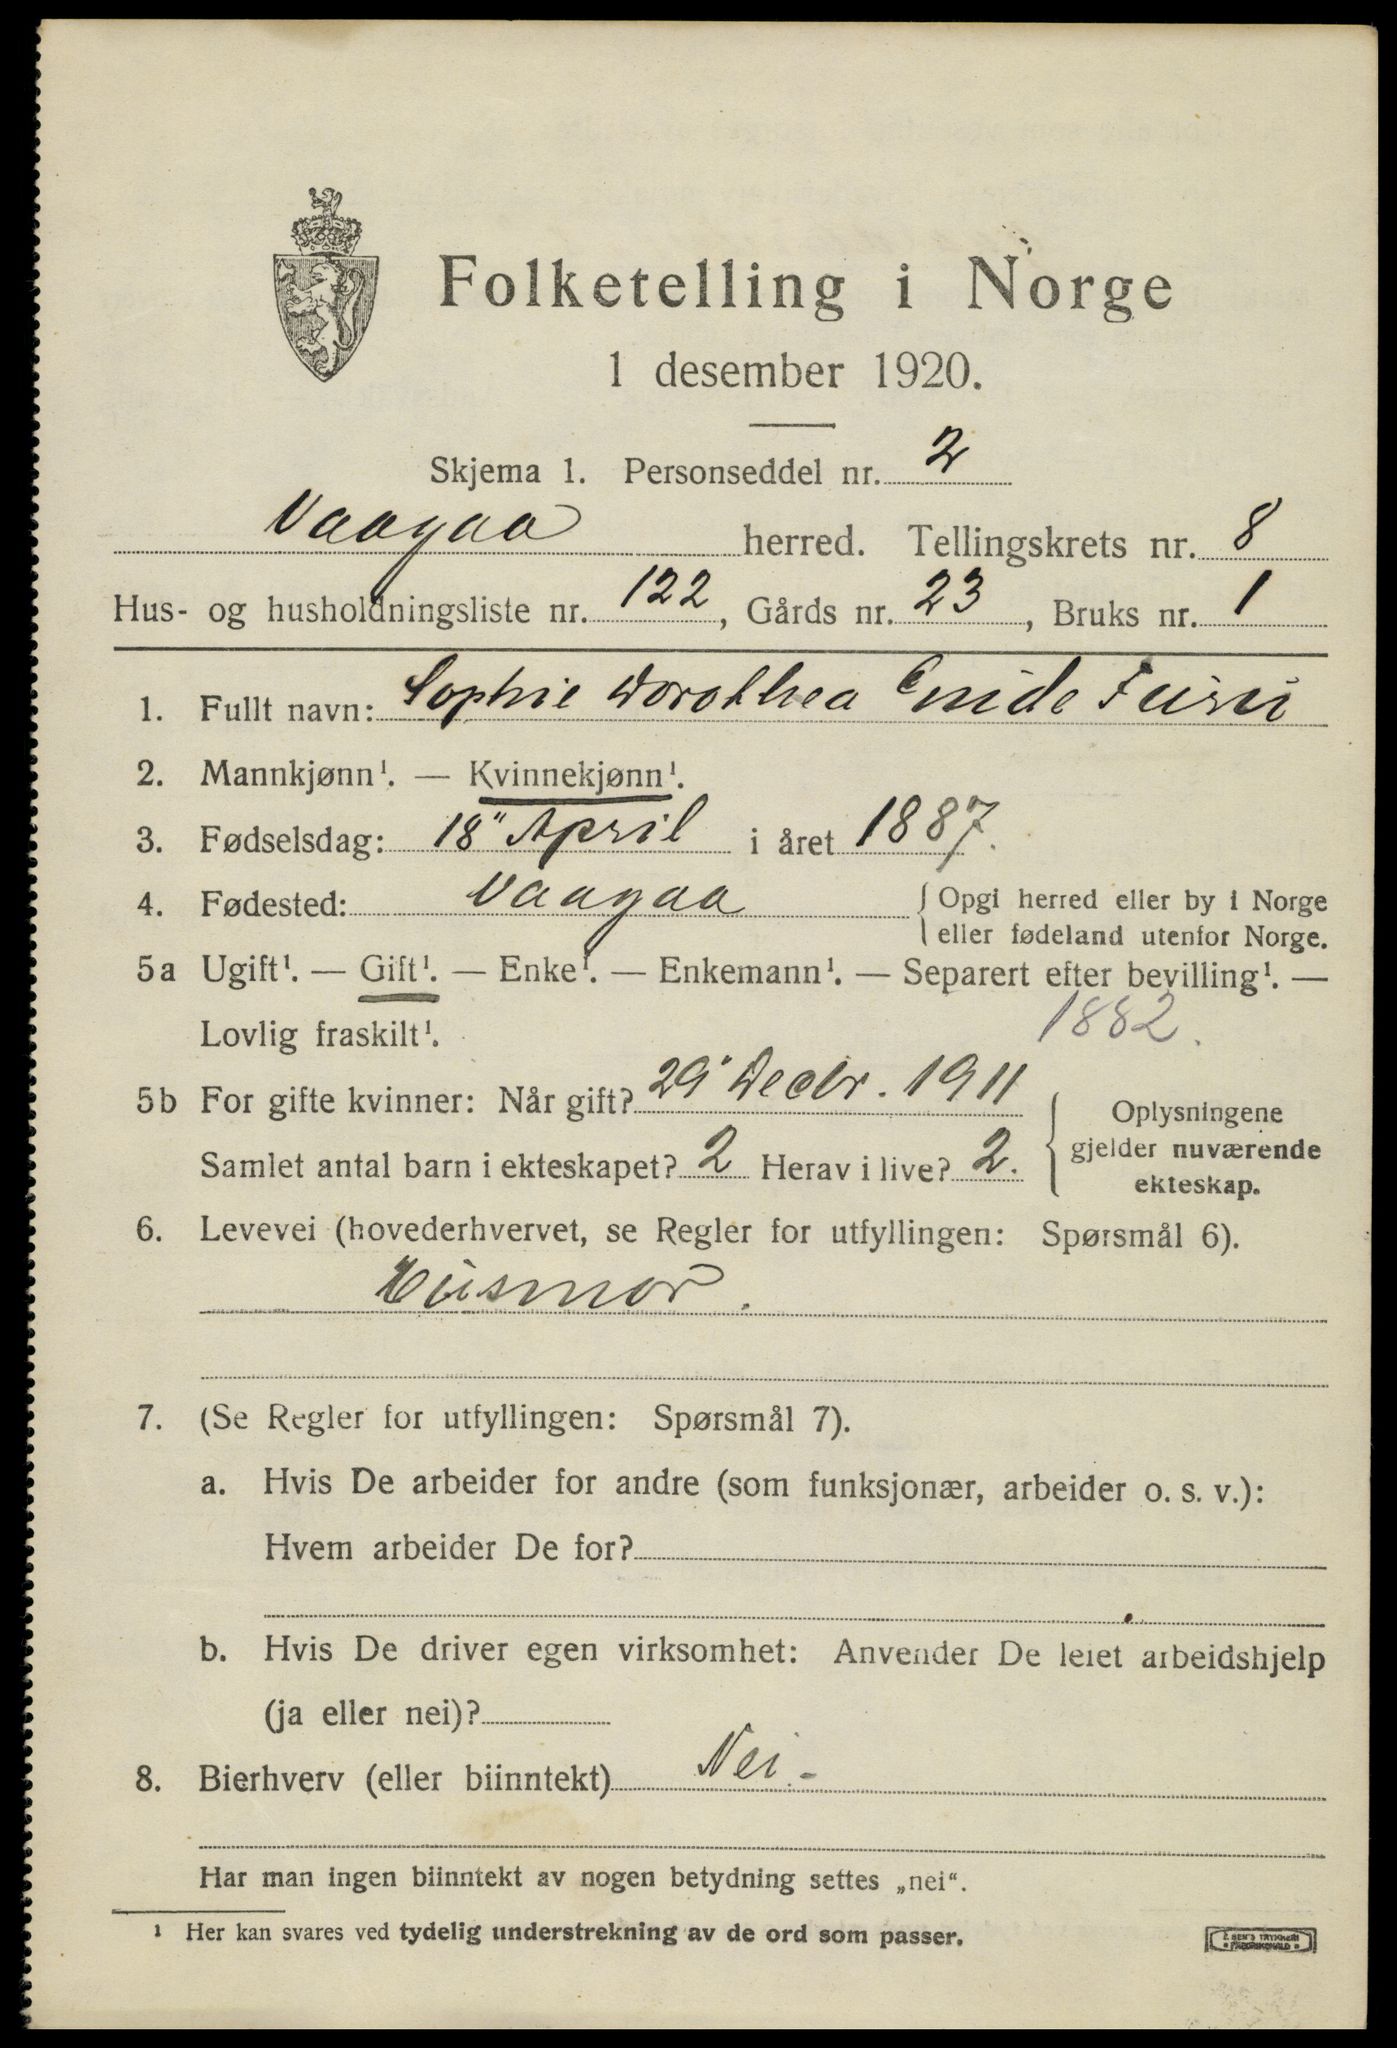 Folketelling i Norge
1 desember 1920.
Skjema 1. Personseddel nr. 2
Vaagaa herred. Tellingskrets nr. 8
Hus- og husholdningsliste nr. 122, Gårds nr. 23, Bruks nr. 1
1. Fullt navn: Sophie Dorothea
2. Mannkjønn¹. — Kvinnekjønn¹.
3. Fødselsdag: 18" April i året 1887.
4. Fødested: Vaagaa { Opgi herred eller by i Norge
eller fødeland utenfor Norge.
5a Ugift¹. — Gift¹. — Enke¹. — Enkemann¹. — Separert efter bevilling¹. —
Lovlig fraskilt¹. 1882.
5b For gifte kvinner: Når gift? 29' Decbr. 1911
Samlet antal barn i ekteskapet? 2 Herav i live? 2.
{ Oplysningene
gjelder nuværende
ekteskap.
6. Levevei (hovederhvervet, se Regler for utfyllingen: Spørsmål 6).
Husmor.
7. (Se Regler for utfyllingen: Spørsmål 7).
a. Hvis De arbeider for andre (som funksjonær, arbeider o. s. v.):
Hvem arbeider De for?
b. Hvis De driver egen virksomhet: Anvender De leiet arbeidshjelp
(ja eller nei)?
8. Bierhverv (eller biinntekt) Nei.-
Har man ingen biinntekt av nogen betydning settes „nei“.
¹ Her kan svares ved tydelig understrekning av de ord som passer.